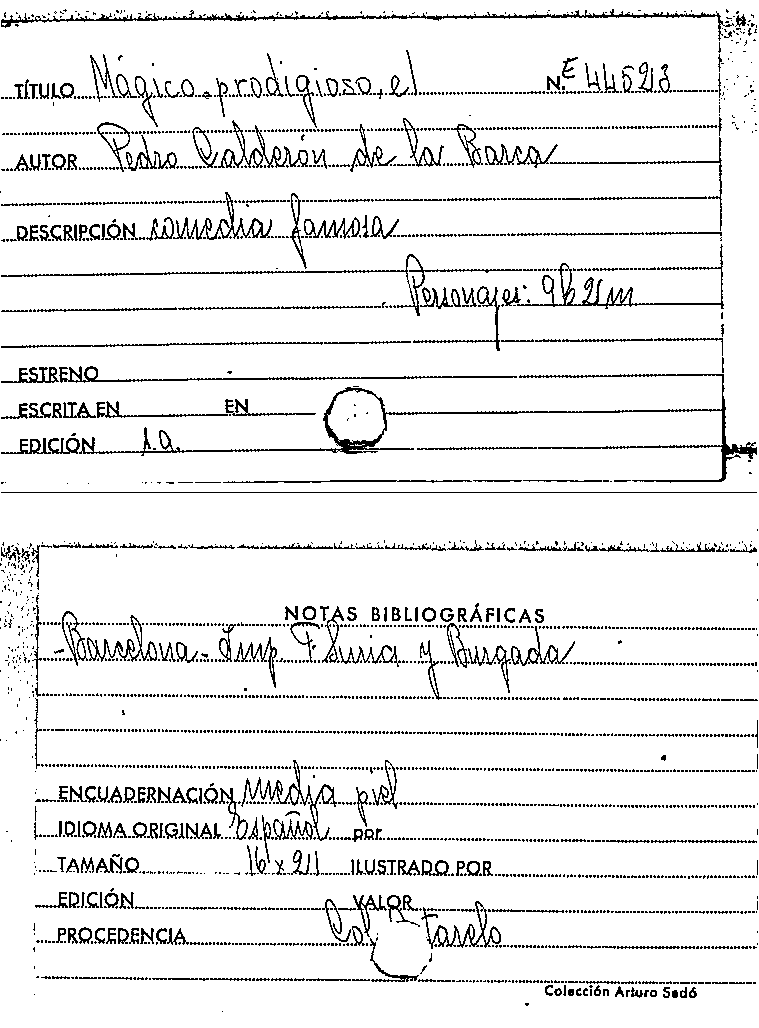 TÍTULO Mágico prodigioso, el N.º E 44523
AUTOR Pedro Calderón de la Barca
DESCRIPCIÓN comedia famosa
Personajes: 9h 2m
ESTRENO
ESCRITA EN EN
EDICIÓN s.a.
NOTAS BIBLIOGRÁFICAS
-Barcelona- Imp. F. Suria y Burgada
ENCUADERNACIÓN media piel
IDIOMA ORIGINAL Español por
TAMAÑO 16 x 21 ILUSTRADO POR
EDICIÓN VALOR
PROCEDENCIA Col tarelo
Colección Arturo Sedó